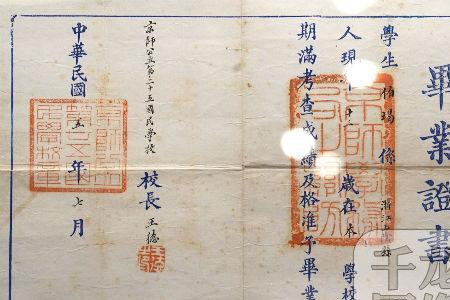 畢業證書
學生 係
人現 歲在本學校
期滿考查成績及格准予畢業
京師公立第二十五國民學校
校長 王德
中華民國五年七月
千龙